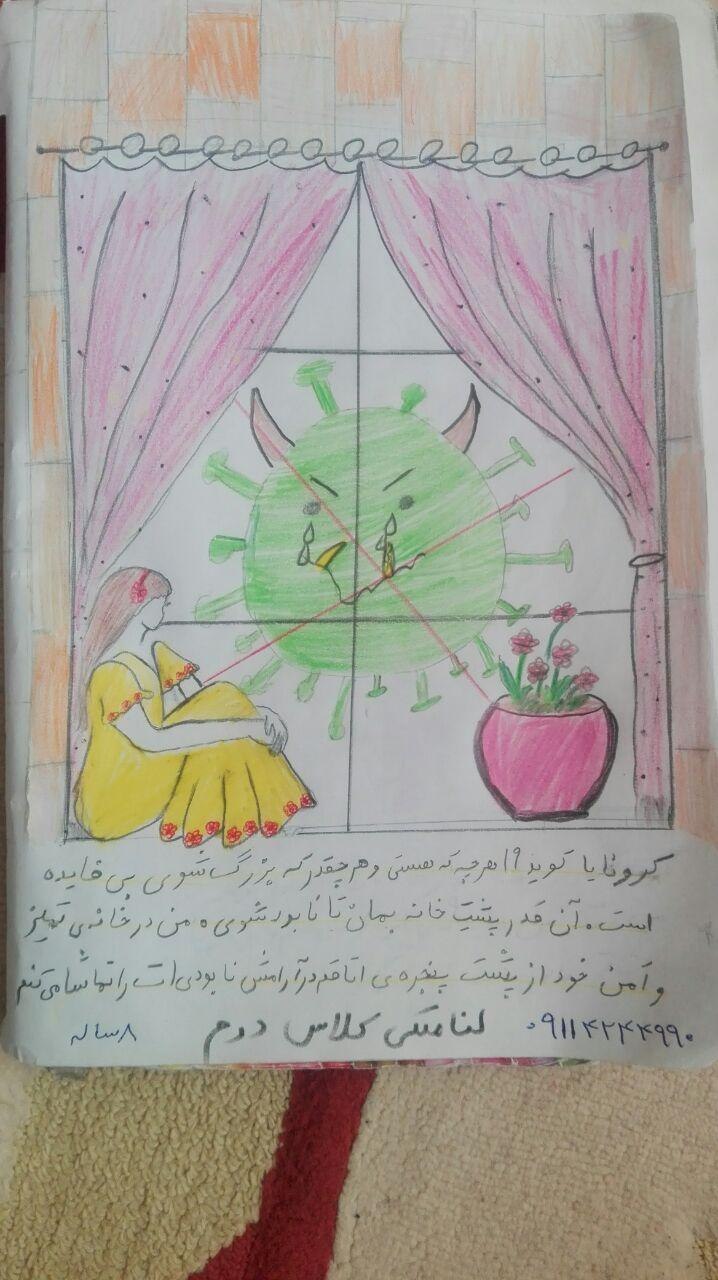 کرونا یا کوید ۱۹ هر چه که هستی و هر چقدر که بزرگ شوی بی فایده
است. آن قدر پشت خانه بمان تا نابود شوی. من در خانه‌ی تمیز
و امن خود از پشت پنجره‌ی اتاقم در آرامش نابودی‌ات را تماشا می‌کنم
کلاس دوم ۸ ساله
۰۹۱۱۴۲۴۴۹۹۰